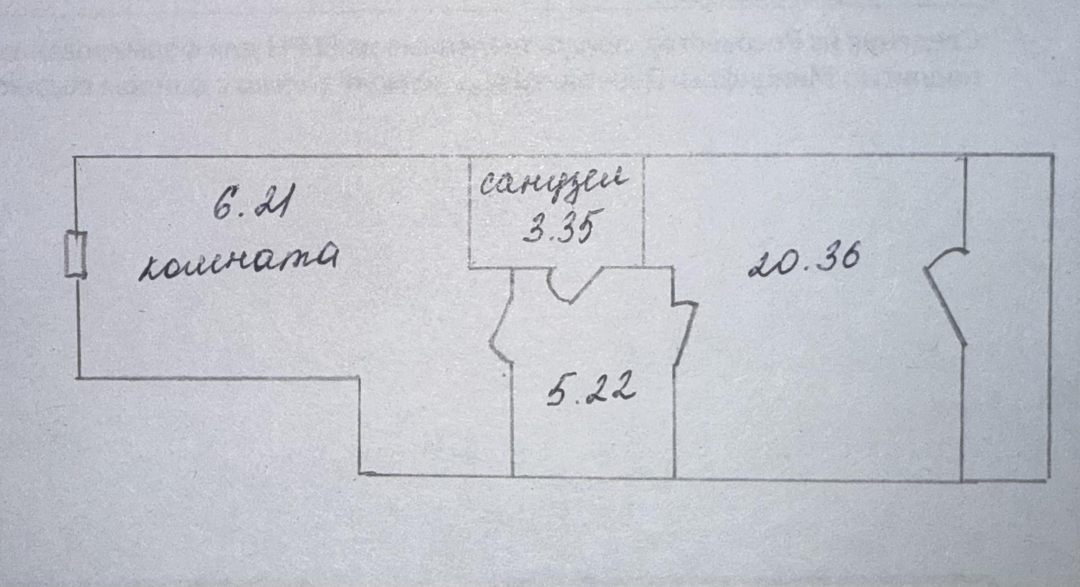 6.21
комната
санузел
3.35
20.36
5.22